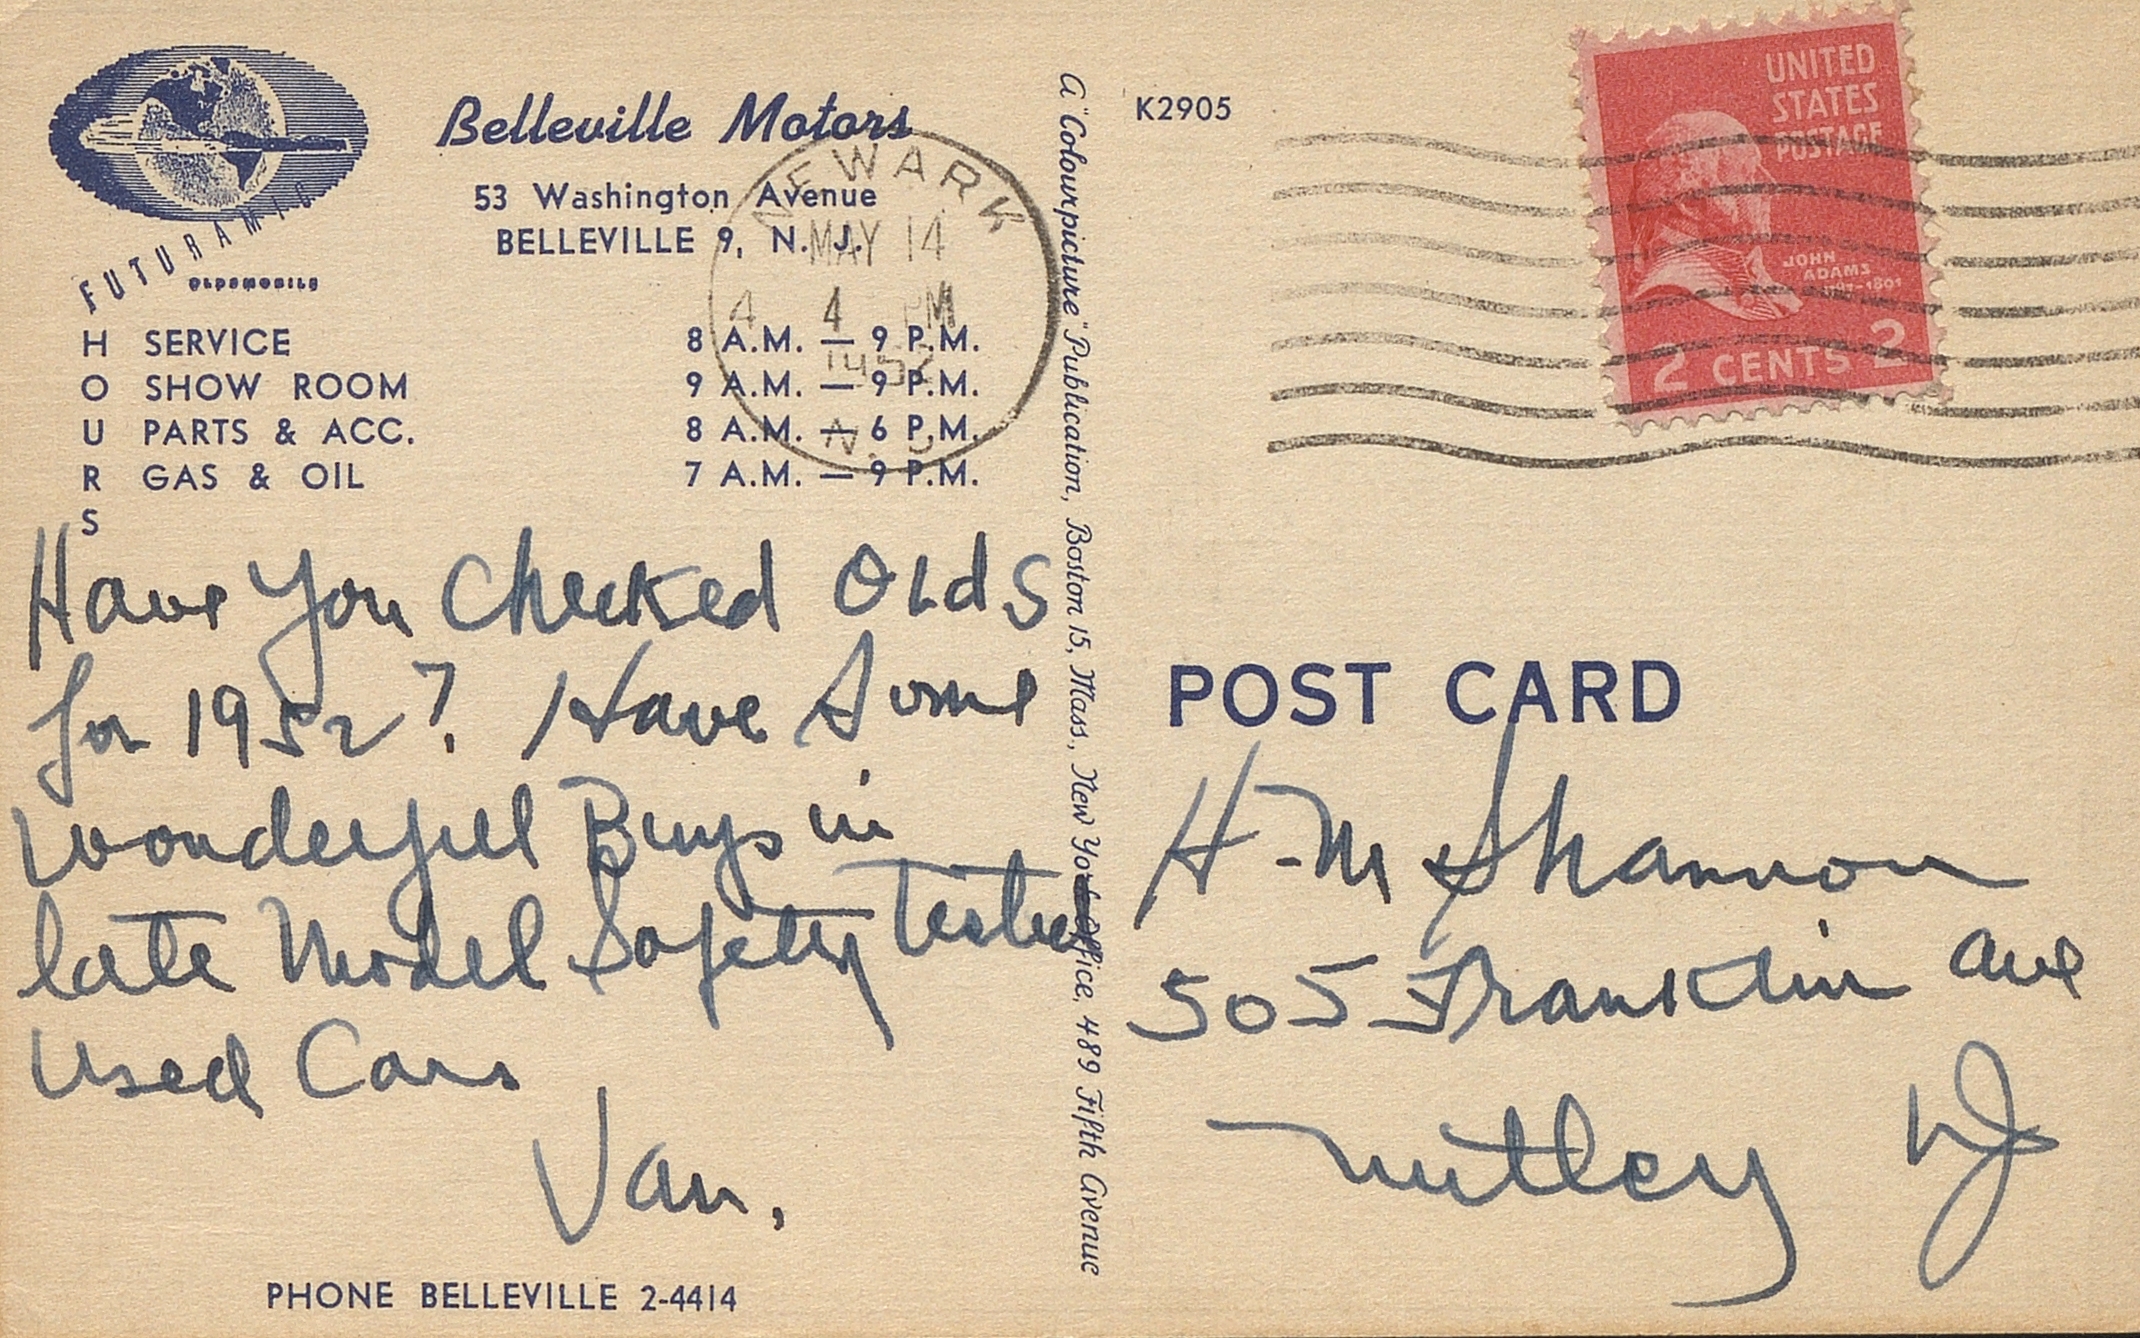 FUTURAMIC
OLDSMOBILE
Belleville Motors
53 Washington Avenue
BELLEVILLE 9, N. J.
HOURS
SERVICE 8 A.M. — 9 P.M.
SHOW ROOM 9 A.M. — 9 P.M.
PARTS & ACC. 8 A.M. — 6 P.M.
GAS & OIL 7 A.M. — 9 P.M.
NEWARK
MAY 14
4 PM
1952
N. J.
Have You Checked Olds
for 1952? Have Some
Wonderful Buys in
late Model Safety Tested
Used Cars
Van.
PHONE BELLEVILLE 2-4414
A "Colourpicture" Publication, Boston 15, Mass., New York Office, 489 Fifth Avenue
K2905
UNITED
STATES
POSTAGE
JOHN
ADAMS
1797-1801
2 CENTS 2
POST CARD
H-M Shannon
505 Franklin Ave
Nutley NJ